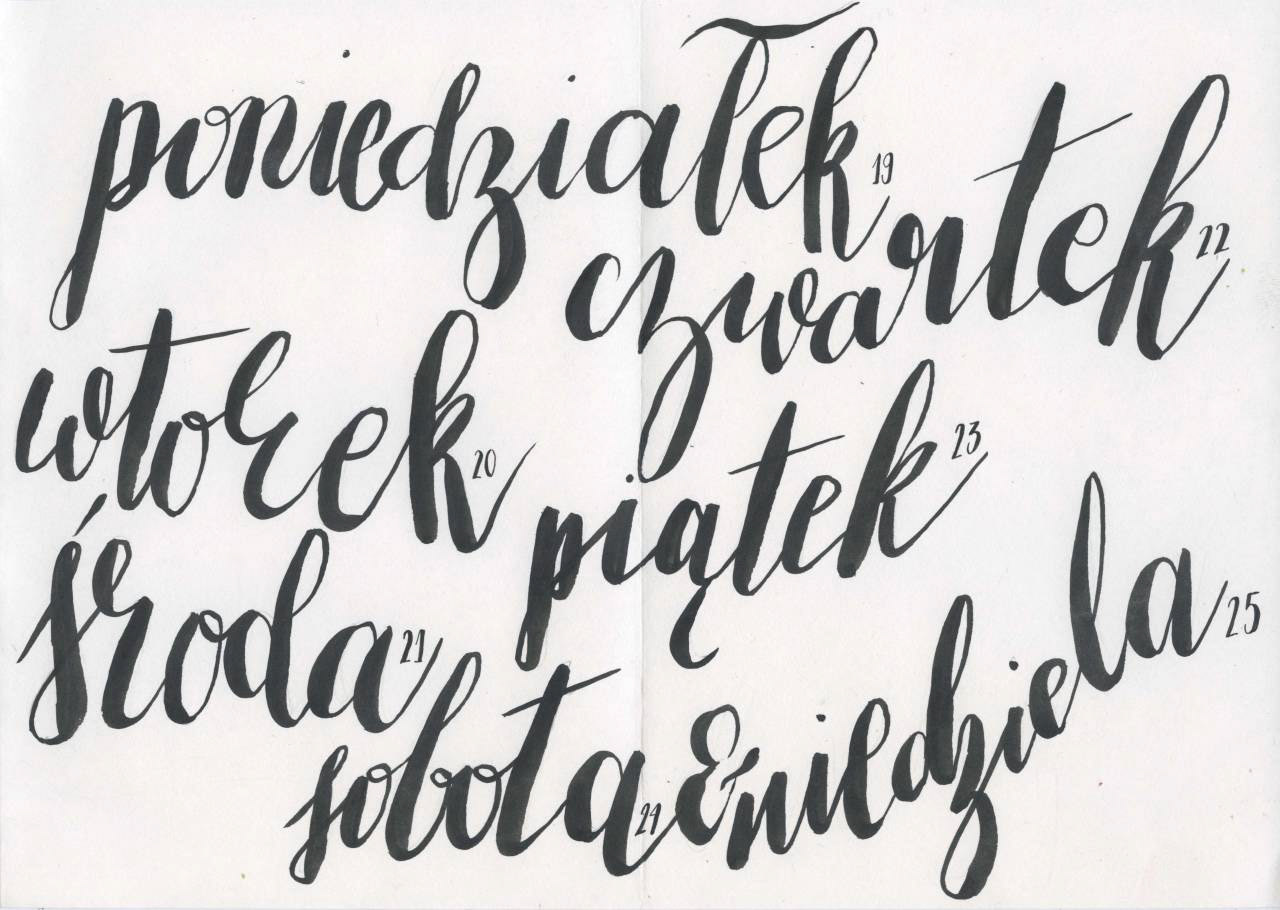 poniedziałek 19
czwartek 22
wtorek 20
piątek 23
środa 21
sobota 24 & niedziela 25